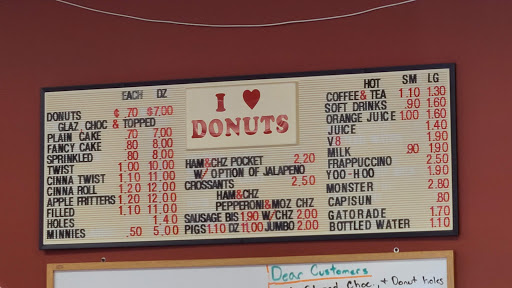 EACH DZ
DONUTS ¢.70 $7.00
GLAZ, CHOC & TOPPED
PLAIN CAKE .70 7.00
FANCY CAKE .80 8.00
SPRINKLED .80 8.00
TWIST 1.00 10.00
CINNA TWIST 1.10 11.00
CINNA ROLL 1.20 12.00
APPLE FRITTERS 1.20 12.00
FILLED 1.10 11.00
HOLES 1.40
MINNIES .50 5.00
I ♥
DONUTS
HAM&CHZ POCKET 2.20
W/ OPTION OF JALAPENO
CROSSANTS 2.50
HAM&CHZ
PEPPERONI&MOZ CHZ
SAUSAGE BIS 1.90 W/CHZ 2.00
PIGS 1.10 DZ 11.00 JUMBO 2.00
HOT SM LG
COFFEE& TEA 1.10 1.30
SOFT DRINKS .90 1.60
ORANGE JUICE 1.00 1.60
JUICE 1.40
V8 1.90
MILK .90 1.90
FRAPPUCCINO 2.50
YOO-HOO 1.90
MONSTER 2.80
CAPISUN .80
GATORADE 1.70
BOTTLED WATER 1.10
Dear Customers
Choc. + Donut holes